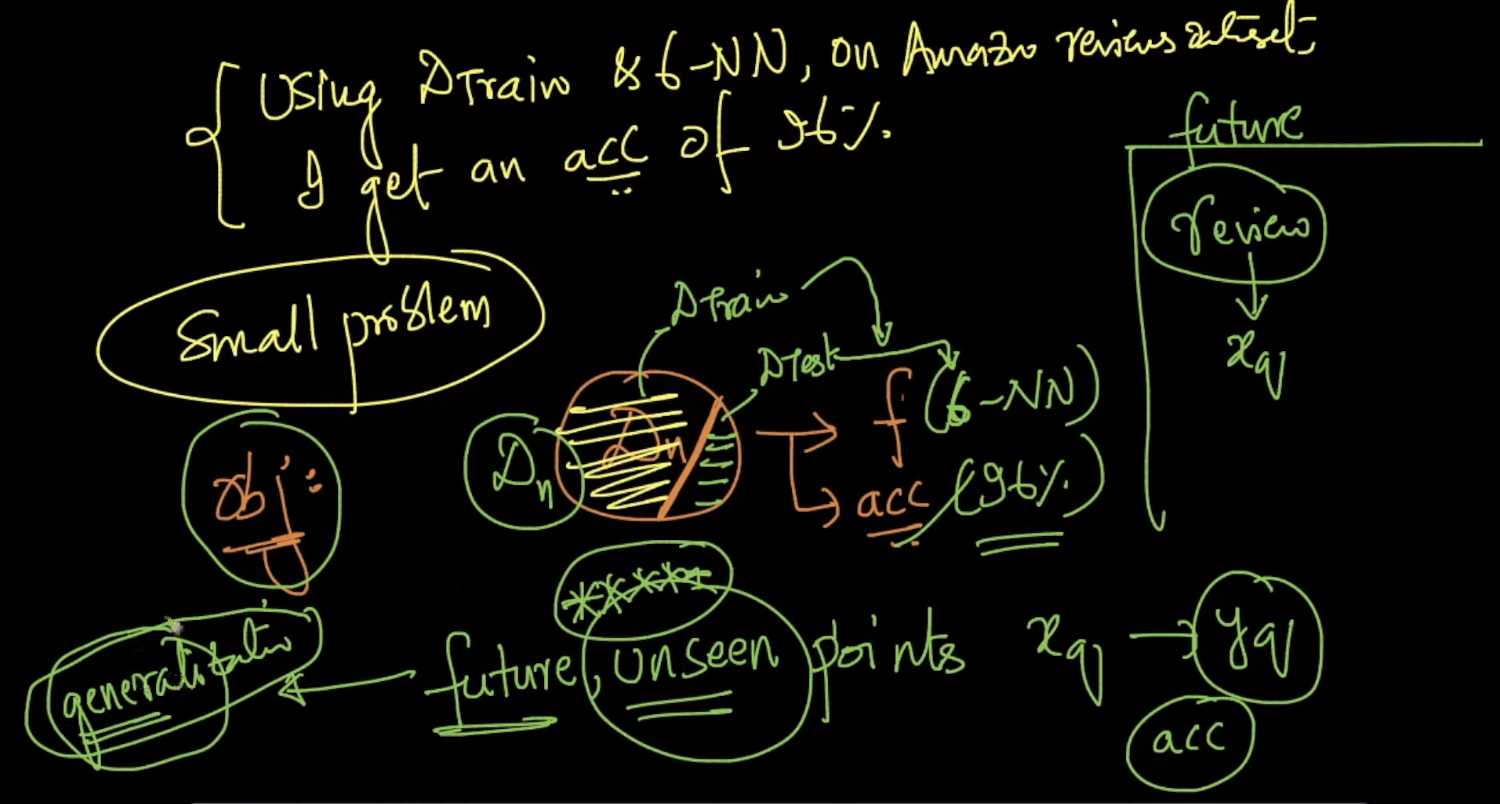 Using DTrain & 6-NN, on Amazon reviews dataset,
I get an acc of 96%.
future
review
xq
Small problem
DTrain
DTest
Dn
Dn
f (6-NN)
acc (96%)
obj:
generalization
future, unseen points xq → yq
acc